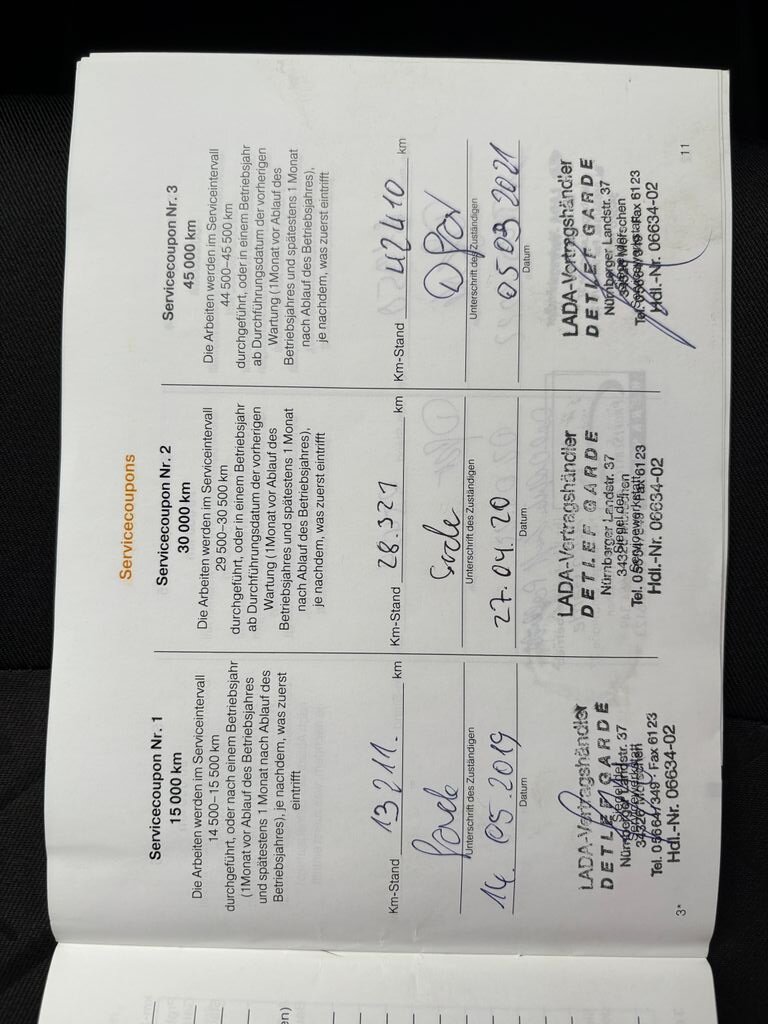 Servicecoupons
Servicecoupon Nr. 1
15 000 km
Die Arbeiten werden im Serviceintervall
14 500–15 500 km
durchgeführt, oder nach einem Betriebsjahr
(1Monat vor Ablauf des Betriebsjahres
und spätestens 1 Monat nach Ablauf des
Betriebsjahres), je nachdem, was zuerst
eintrifft
Km-Stand 13211.- km
Unterschrift des Zuständigen
14. 05.2019
Datum
LADA-Vertragshändler
DETLEF GARDE
Nürnberger Landstr. 37
Tel. 05664/349 · Fax 6123
Hdl.-Nr. 06634-02
3*
Servicecoupon Nr. 2
30 000 km
Die Arbeiten werden im Serviceintervall
29 500–30 500 km
durchgeführt, oder in einem Betriebsjahr
ab Durchführungsdatum der vorherigen
Wartung (1Monat vor Ablauf des
Betriebsjahres und spätestens 1 Monat
nach Ablauf des Betriebsjahres),
je nachdem, was zuerst eintrifft
Km-Stand 28.321 km
Unterschrift des Zuständigen
27.04.20
Datum
LADA-Vertragshändler
DETLEF GARDE
Nürnberger Landstr. 37
Fax 6123
Hdl.-Nr. 06634-02
Servicecoupon Nr. 3
45 000 km
Die Arbeiten werden im Serviceintervall
44 500–45 500 km
durchgeführt, oder in einem Betriebsjahr
ab Durchführungsdatum der vorherigen
Wartung (1Monat vor Ablauf des
Betriebsjahres und spätestens 1 Monat
nach Ablauf des Betriebsjahres),
je nachdem, was zuerst eintrifft
Km-Stand 42410 km
Unterschrift des Zuständigen
05 03 2021
Datum
LADA-Vertragshändler
DETLEF GARDE
Nürnberger Landstr. 37
Fax 6123
Hdl.-Nr. 06634-02
11